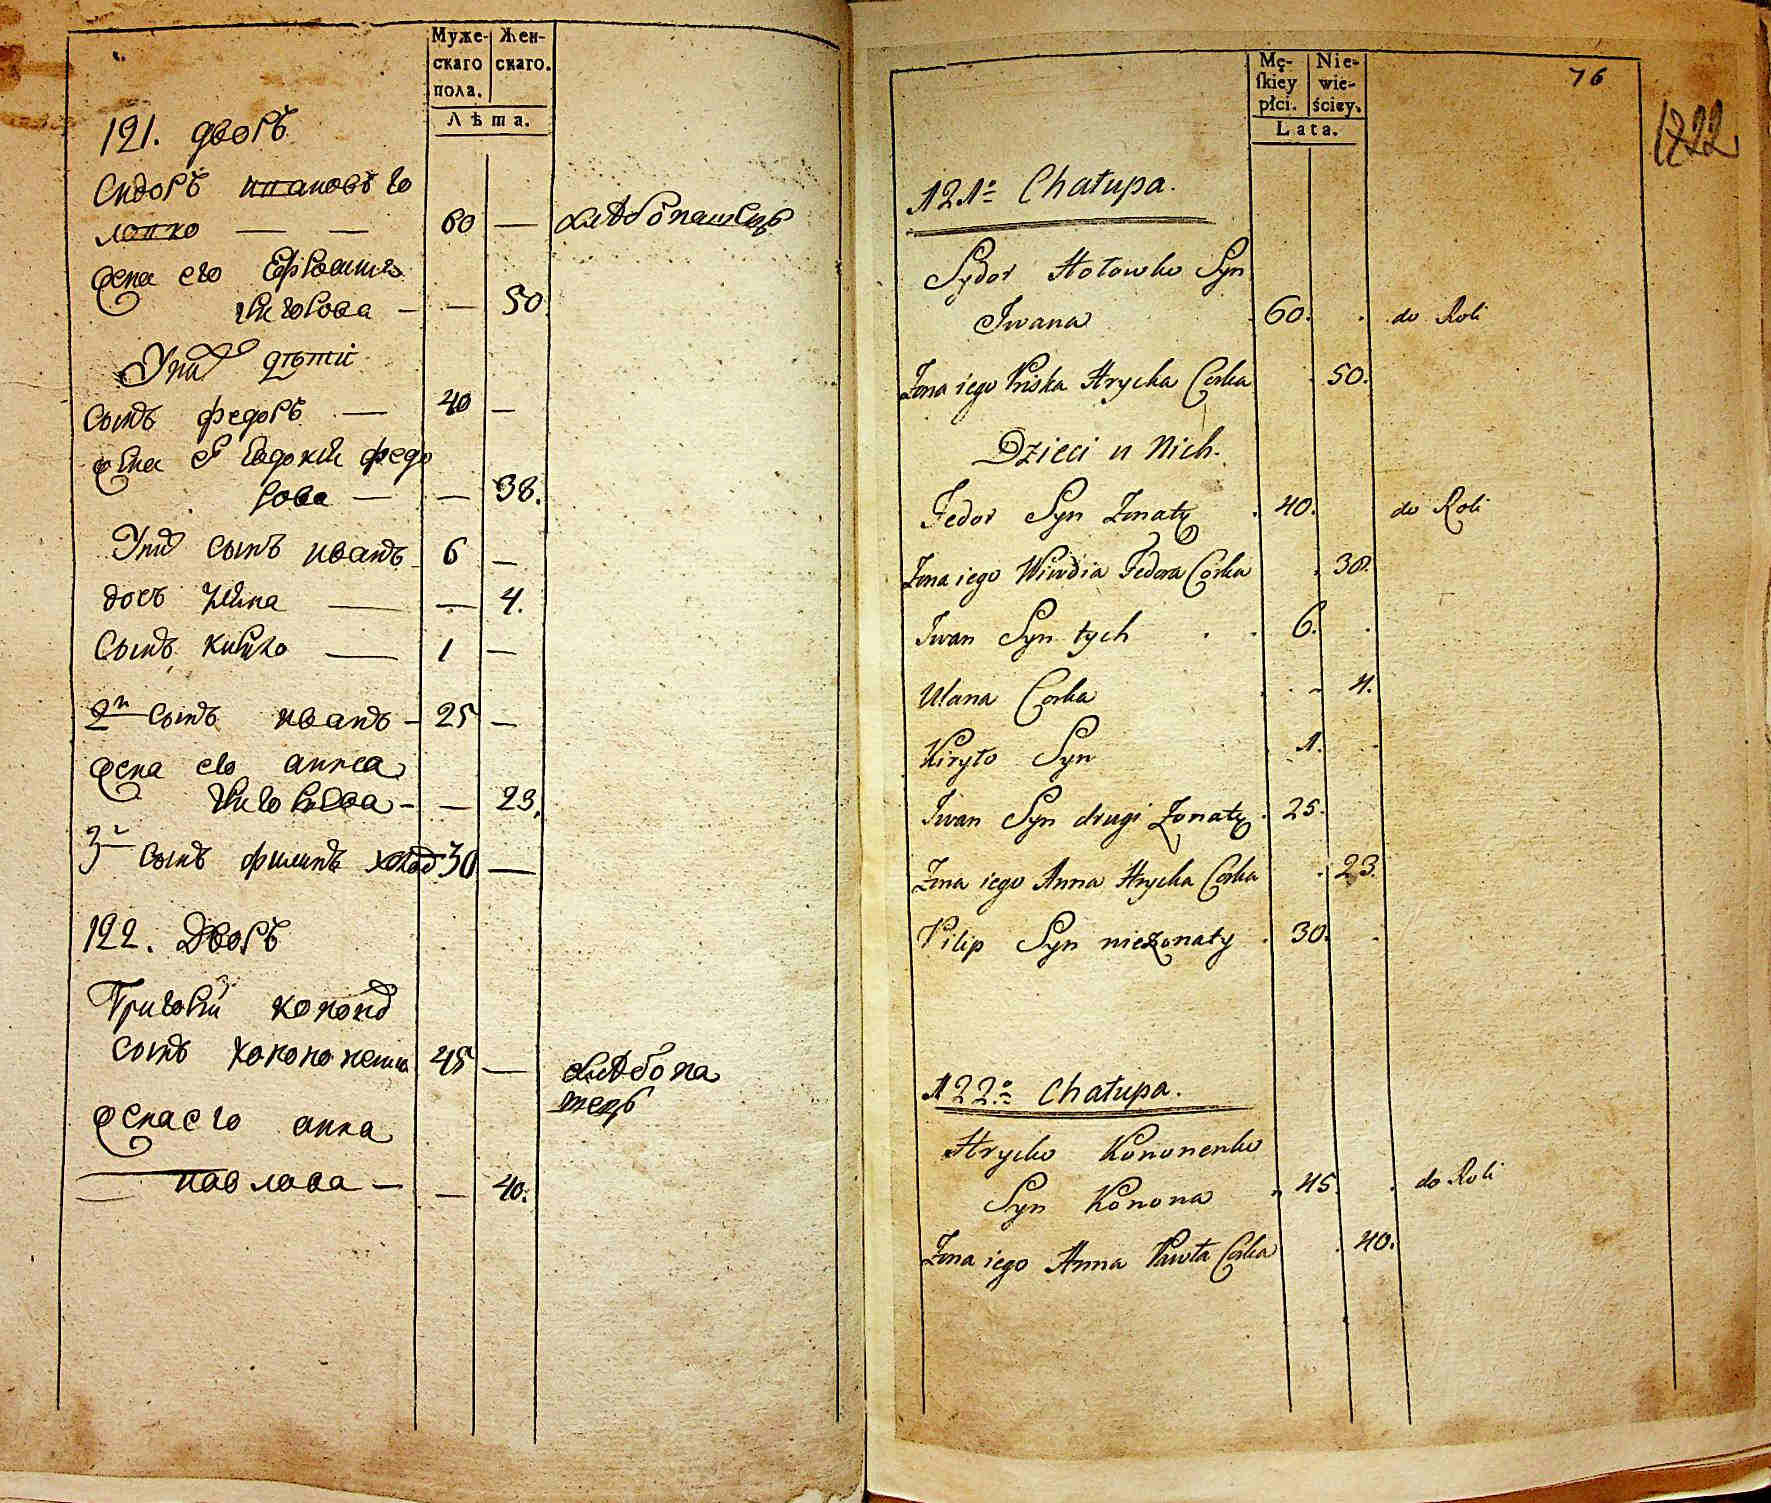 Муже- Жен-
скаго скаго.
пола.
Лѣта.
121. дворъ
Сидоръ ивановъ го
ловко — — 60 — хлѣбопашецъ
жена его Ефросиния
григорова — — 50.
У них дѣти
сынъ федоръ — 40 —
жена его Евдокия федо
рова — — 38.
У них сынъ иванъ 6 —
дочь — — 4.
Сынъ кирило — 1 —
2й сынъ иванъ — 25 —
жена его анна
григорьева — — 23.
3й сынъ филипъ холост 30 —
122. Дворъ
Григорий конон
сынъ кононенко 45 — хлѣбопа
шецъ
жена его анна
павлова — — 40.
Mę- Nie-
skiey wie-
płci. ściey.
Lata.
76
122
121o Chałupa.
Sydor Hołowko Syn
Iwana 60. . do Roli
Zona iego Priska Hrycka Corka . 50.
Dzieci u Nich.
Fedor Syn Zonaty . 40. do Roli
Zona iego Fedora Corka . 38.
Iwan Syn tych . . 6. .
Ulana Corka . . 4.
Kiryło Syn . 1. .
Iwan Syn drugi Zonaty . 25.
Zona iego Anna Hrycka Corka . 23.
Filip Syn nieżonaty . 30. .
122o Chałupa.
Hrycko Kononenko
Syn Konona 45. . do Roli
Zona iego Anna Pawła Corka . 40.